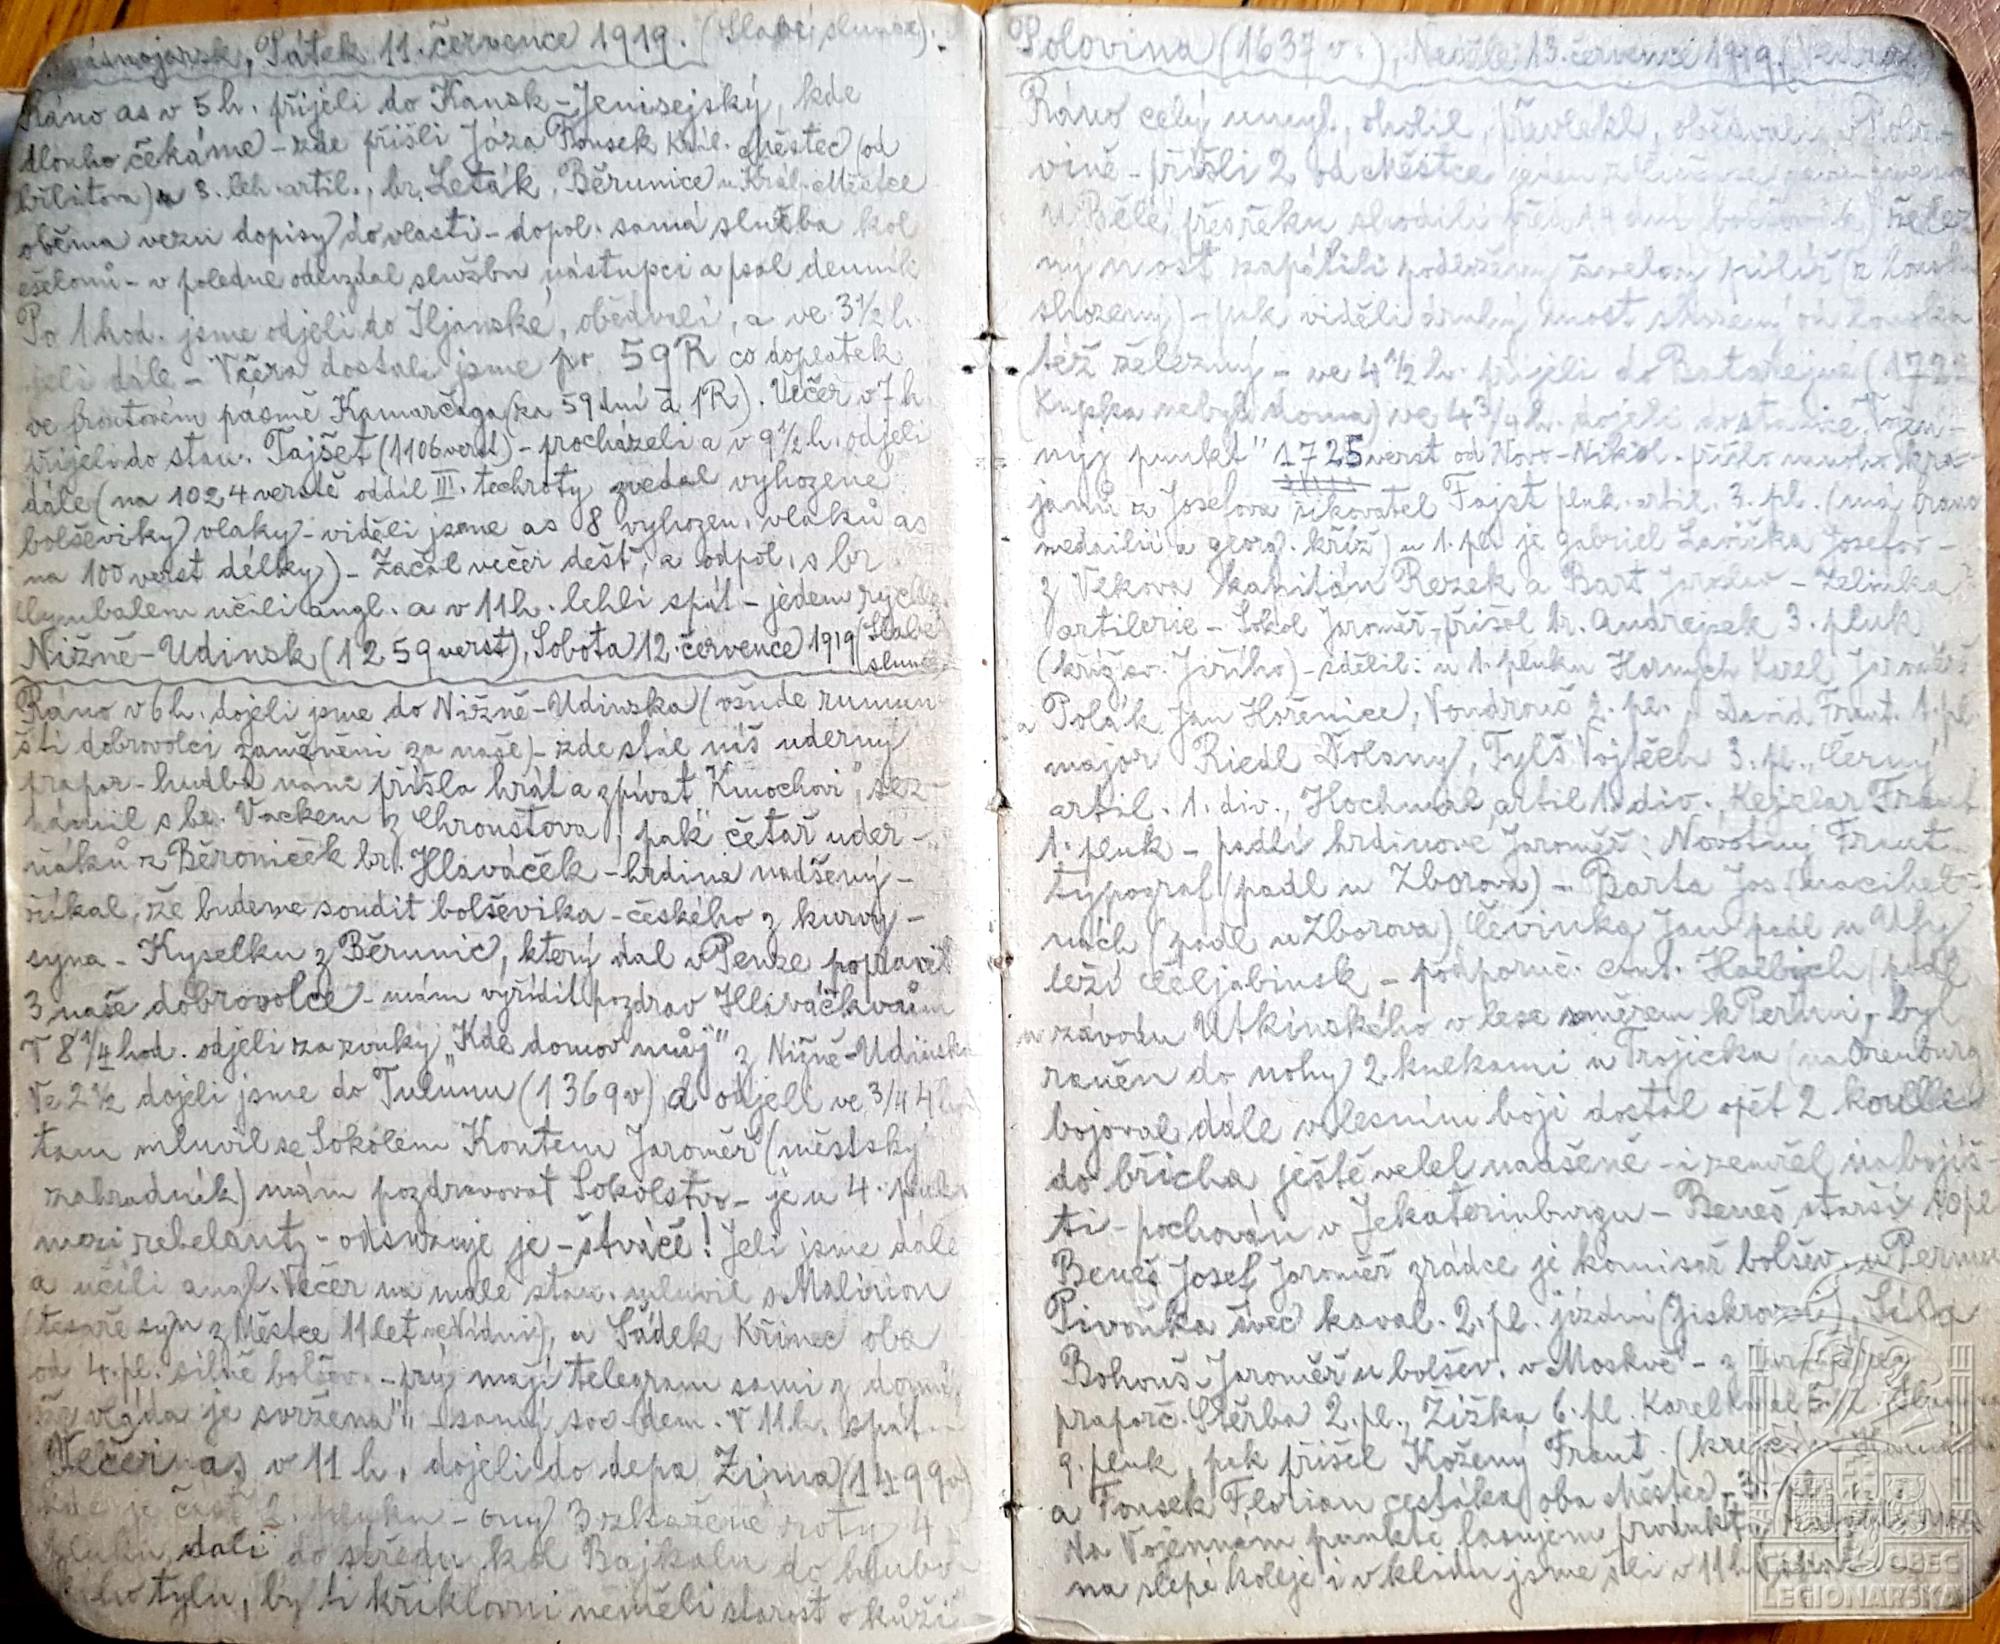 Krásnojarsk, Pátek 11. července 1919. (Slabé slunce).
Ráno as v 5 h. přijeli do Kansk-Jenisejský, kde
dlouho čekáme - zde přišli Józa Fousek Král. Městec (od
hřbitova) u 3. leh. artil., br. Leták, Běrunice u Král. Městce
oběma vezu dopisy do vlasti - dopol. samá služba kol
ešelonů - v poledne odevzdal službu nástupci a psal denník
Po 1 hod. jsme odjeli do Iljanské, obědvali, a ve 3 1/2 h.
jeli dále - Včera dostali jsme po 59 R co doplatek
ve frontovém pásmě Kamarčaga (za 59 dní á 1R). Večer v 7 h
přijeli do stan. Tajšet (1106 verst) - procházeli a v 9 1/2 h. odjeli
dále (na 1024 verstě oddíl III. techroty zvedal vyhozené
bolševiky vlaky - viděli jsme as 8 vyhozen. vlaků as
na 100 verst délky) - Začal večer déšť, a odpol. s br.
Cymbalem učili angl. a v 11 h. lehli spát - jedem rychle.
Nižně-Udinsk (1259 verst), Sobota 12. července 1919 (Slabé
slunce)
Ráno v 6 h. dojeli jsme do Nižně-Udinska (všude rumun
ští dobrovolci zaměněni za naše) - zde stál náš uderný
prapor - hudba nám přišla hrát a zpívat "Kmochovi", sez-
námil s br. Vackem z Chroustova, pak četař uder-
náků z Běroniček br. Hlaváček - hrdina nadšený -
říkal, že budeme soudit bolševika - českého z kurvy -
syna - Kyselku z Běrunic, který dal v Penze popravit
3 naše dobrovolce - mám vyřídit pozdrav Hlaváčkovům
V 8 1/4 hod. odjeli za zvuky "Kde domov můj" z Nižně-Udinska
Ve 2 1/2 dojeli jsme do Tulunu (1369 v) a odjeli ve 3/4 4 hod
tam mluvil se Sokolem Koutem Jaroměř (městský
zahradník) mám pozdravovat Sokolstvo - je u 4. pluku
mezi rebelanty - odsuzuje je - štváče! Jeli jsme dále
a učili angl. Večer na malé stan. mluvil s Malinou
(tesaře syn z Městce 11 let neviděni), a Sádek Křinec oba
od 4. pl. silně bolšev. - prý mají telegram sami z domu,
že "vláda je svržena" - samý soc-dem. V 11 h. spát -
Večer as v 11 h. dojeli do depa Zima (1499 v)
kde je část 2. pluku - ony 3 zkažené roty 4
pluku dali do středu kol Bajkalu do hlubo-
kého tylu, by ti křiklouni neměli starost o kůži
Polovina (1637 v.), Neděle 13. července 1919. Vedro.
Ráno celý umyl, oholil, převlékl, obědvali v Polo-
vině - přišli 2 od Městce jeden z
u Bělé, přes řeku shodili před 14 dny bolševik) želez
ný most zapálili podložený dřevem pilíř (z kousků
složený) - pak viděli druhý most složený od kouska
též železný - ve 4 1/2 h. přijeli do Batarejné (1722
(Kupka nebyl doma) ve 4 3/4 h. dojeli do stanice "Vojen-
nyj punkt" 1725 verst od Novo-Nikol. přišlo mnoho kra-
janů z Josefova šikovatel Fajst pluk. artil. 3. pl. (má franc
medailii a georg. kříž) u 1. pl. je Gabriel Lavička Josefov -
z Vlkova kapitán Rezek a Bart Jaroslav - Zelinka
artilerie - Sokol Jaroměř, přišel br. Andrejsek 3. pluk
(kříž sv. Jiřího) - sdělil: u 1. pluku Hornych Karel, Jaroměř
a Polák Jan Hořenice, Vondrouš 2. pl. David Frant. 1. pl.
major Riedl Dolany, Tylš Vojtěch 3. pl., Černý
artil. 1. div., Hochmal artil 1. div., Kejclar Frant
1. pluk - padlí hrdinové Jaroměř: Novotný Frant.
typograf (padl u Zborova) - Barta Jos.
nách (padl u Zborova) Červinka Jan padl u Ufy
leží Čeljabinsk - podporuč. Holbich (padl
u závodu Utkinského v lese směrem k Permi, byl
raněn do nohy 2. kulkami u Trojicka (na Orenburg
bojoval dále v lesním boji dostal opět 2 koulle
do břicha ještě velel nadšeně - i zemřel na bojiš-
ti - pochován v Jekaterinburgu - Beneš starší 10 pl
Beneš Josef Jaroměř zrádce je komisař bolšev. u Permu
Pivoňka švec kaval. 2. pl. jízdní (Jiskrovci), Síla
Bohouš Jaroměř u bolšev. v Moskvě -
praporč. Stěrba 2. pl., Žižka 6. pl. Karel 5. pl.
9. pluk, pak přišel Kožený Frant.
a Fousek Florian cestáka oba Městec - 3. pl.
Na Vojennom punktě lasujem produkty
na slepé koleje i v klidu jsme šli v 11 h
ČESKÁ OBEC
LEGIONÁŘSKÁ